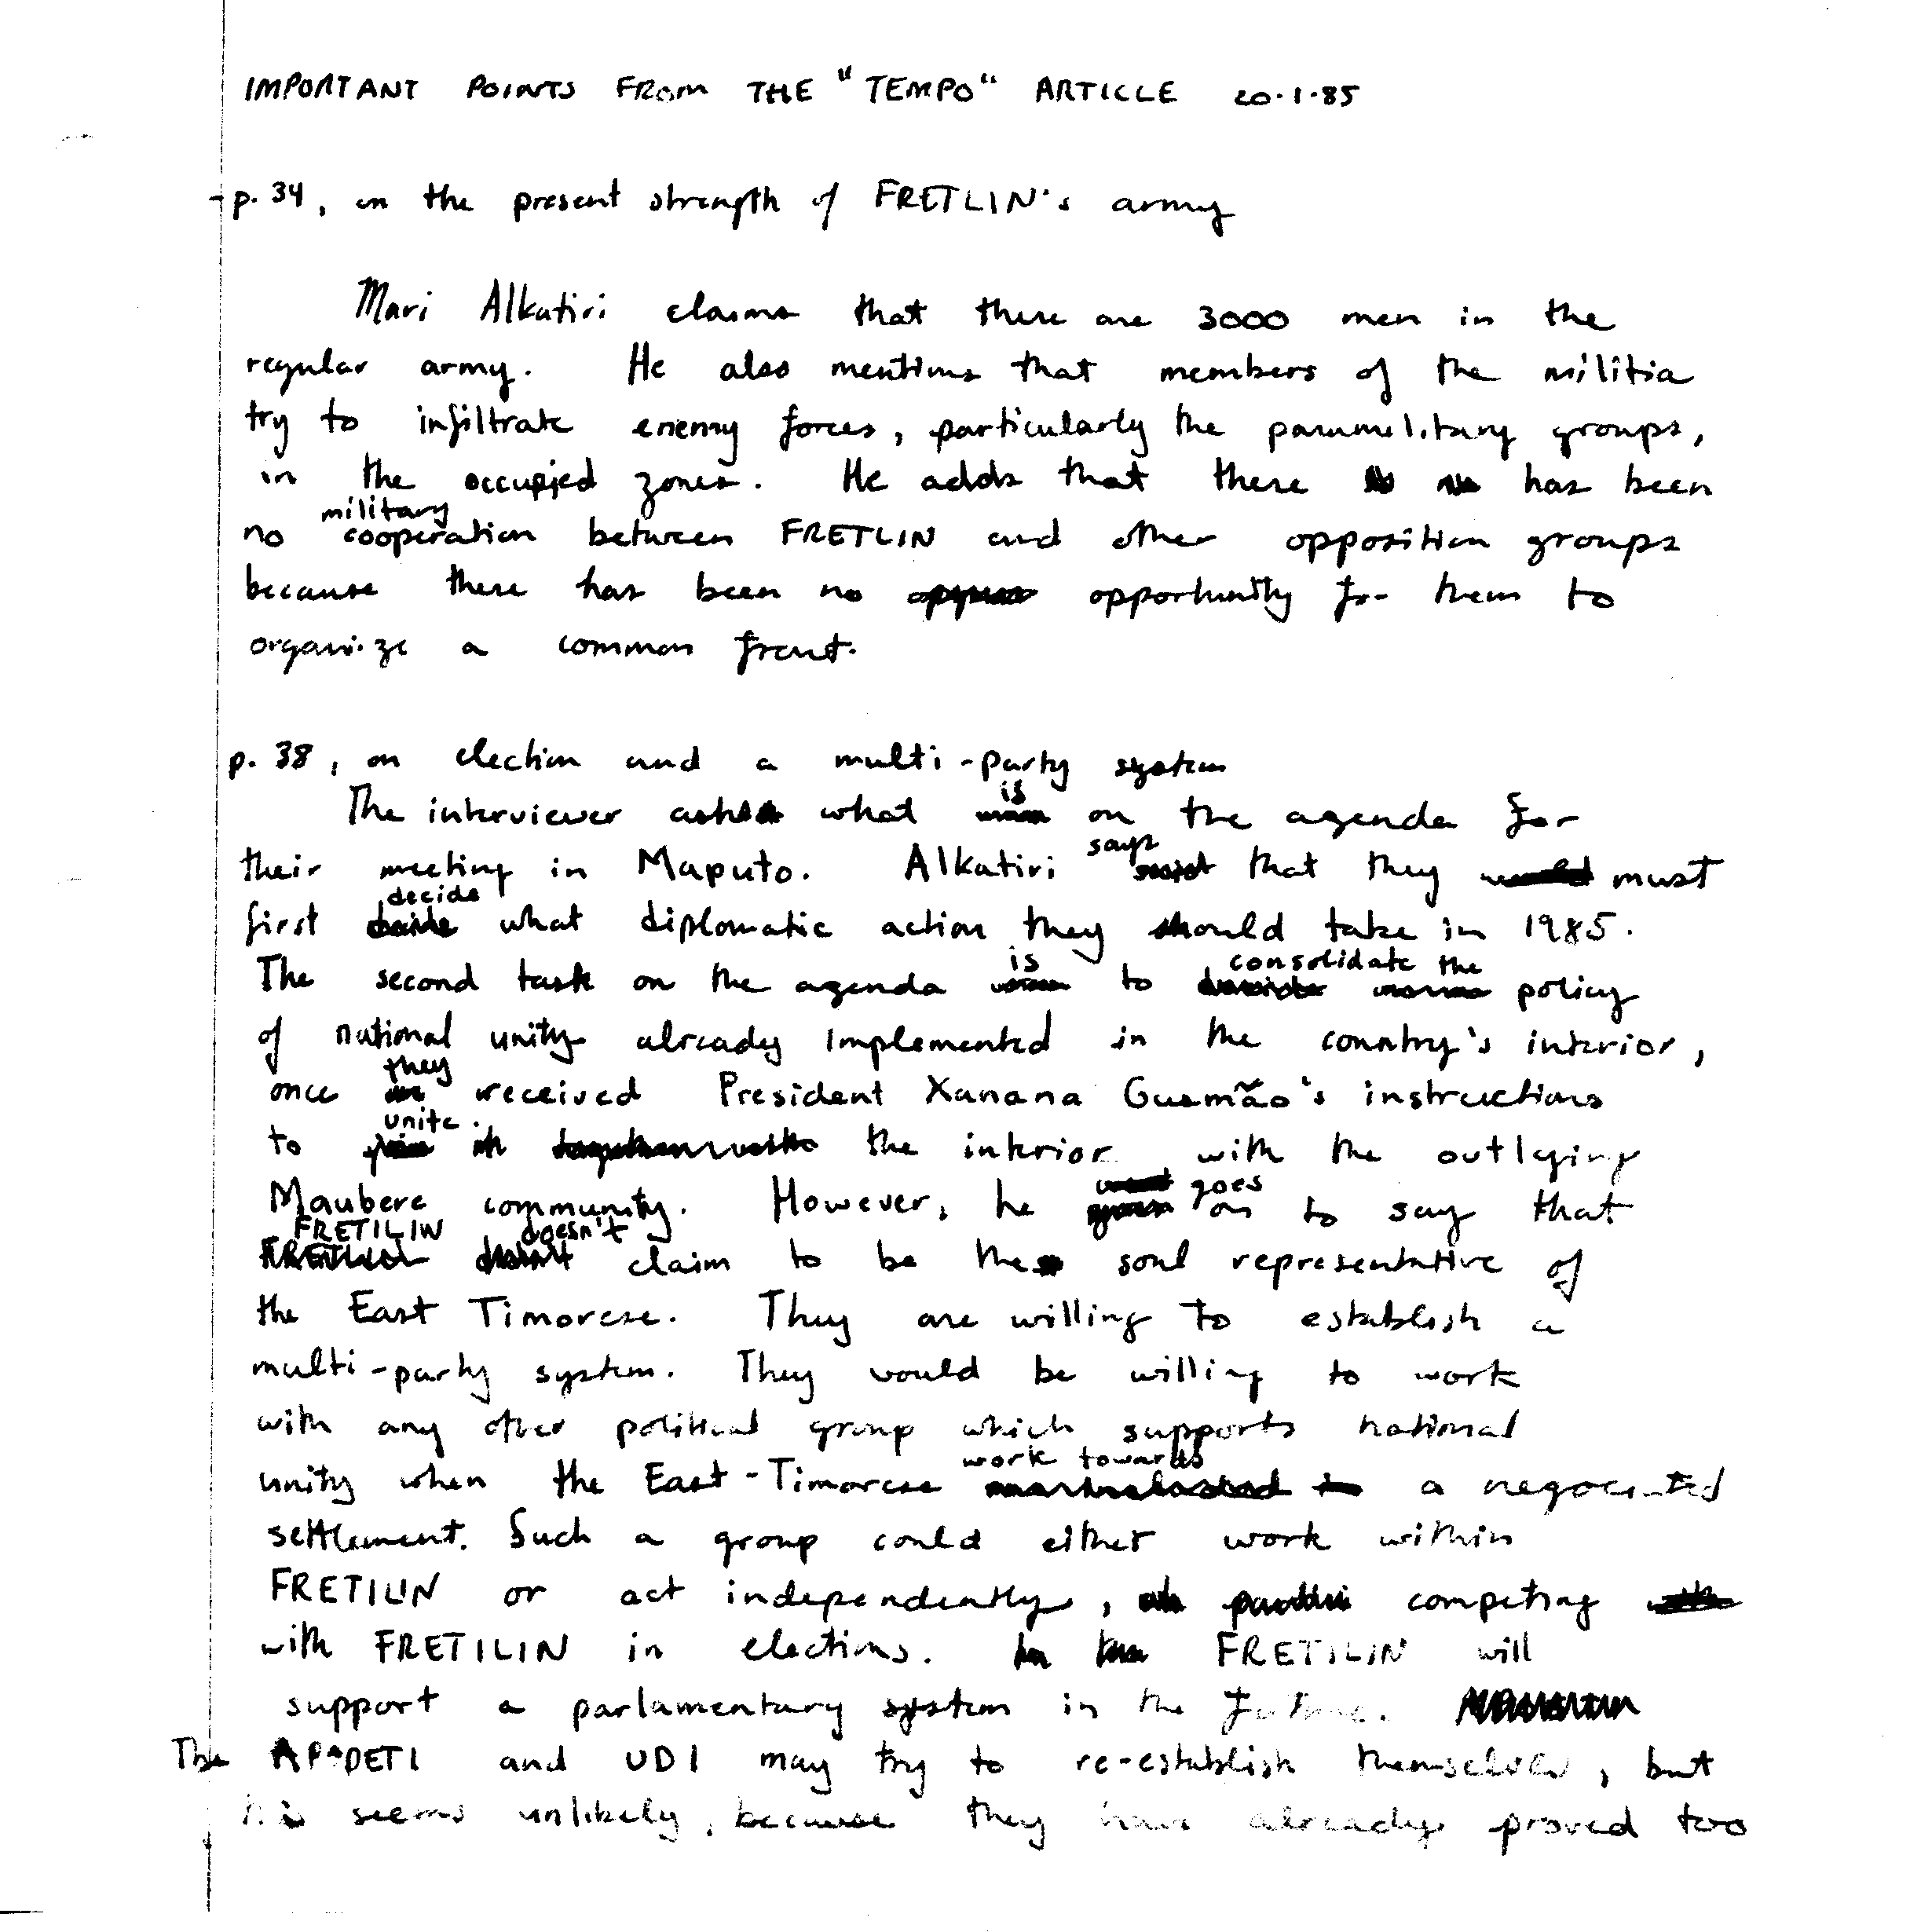 IMPORTANT POINTS FROM THE "TEMPO" ARTICLE 20.1.85
-p. 34, on the present strength of FRETLIN's army
Mari Alkatiri claims that there are 3000 men in the
regular army. He also mentions that members of the militia
try to infiltrate enemy forces, particularly the paramilitary groups,
in the occupied zones. He adds that there has been
military
no cooperation between FRETLIN and other opposition groups
because there has been no opportunity for them to
organize a common front.
p. 38, on election and a multi-party system
is
The interviewer asks what on the agenda for
says
their meeting in Maputo. Alkatiri that they must
decide
first what diplomatic action they should take in 1985.
is consolidate the
The second task on the agenda to policy
of national unity already implemented in the country's interior,
they
once received President Xanana Gusmão's instructions
unite
to the interior with the outlying
goes
Maubere community. However, he on to say that
FRETILIN doesn't
claim to be the soul representative of
the East Timorese. They are willing to establish a
multi-party system. They would be willing to work
with any other political group which supports national
work towards
unity when the East-Timorese a negociated
settlement. Such a group could either work within
FRETILIN or act independently, competing
with FRETILIN in elections. FRETILIN will
support a parlamentary system in the future.
The APODETI and UDI may try to re-establish themselves, but
this seems unlikely, because they have already proved too